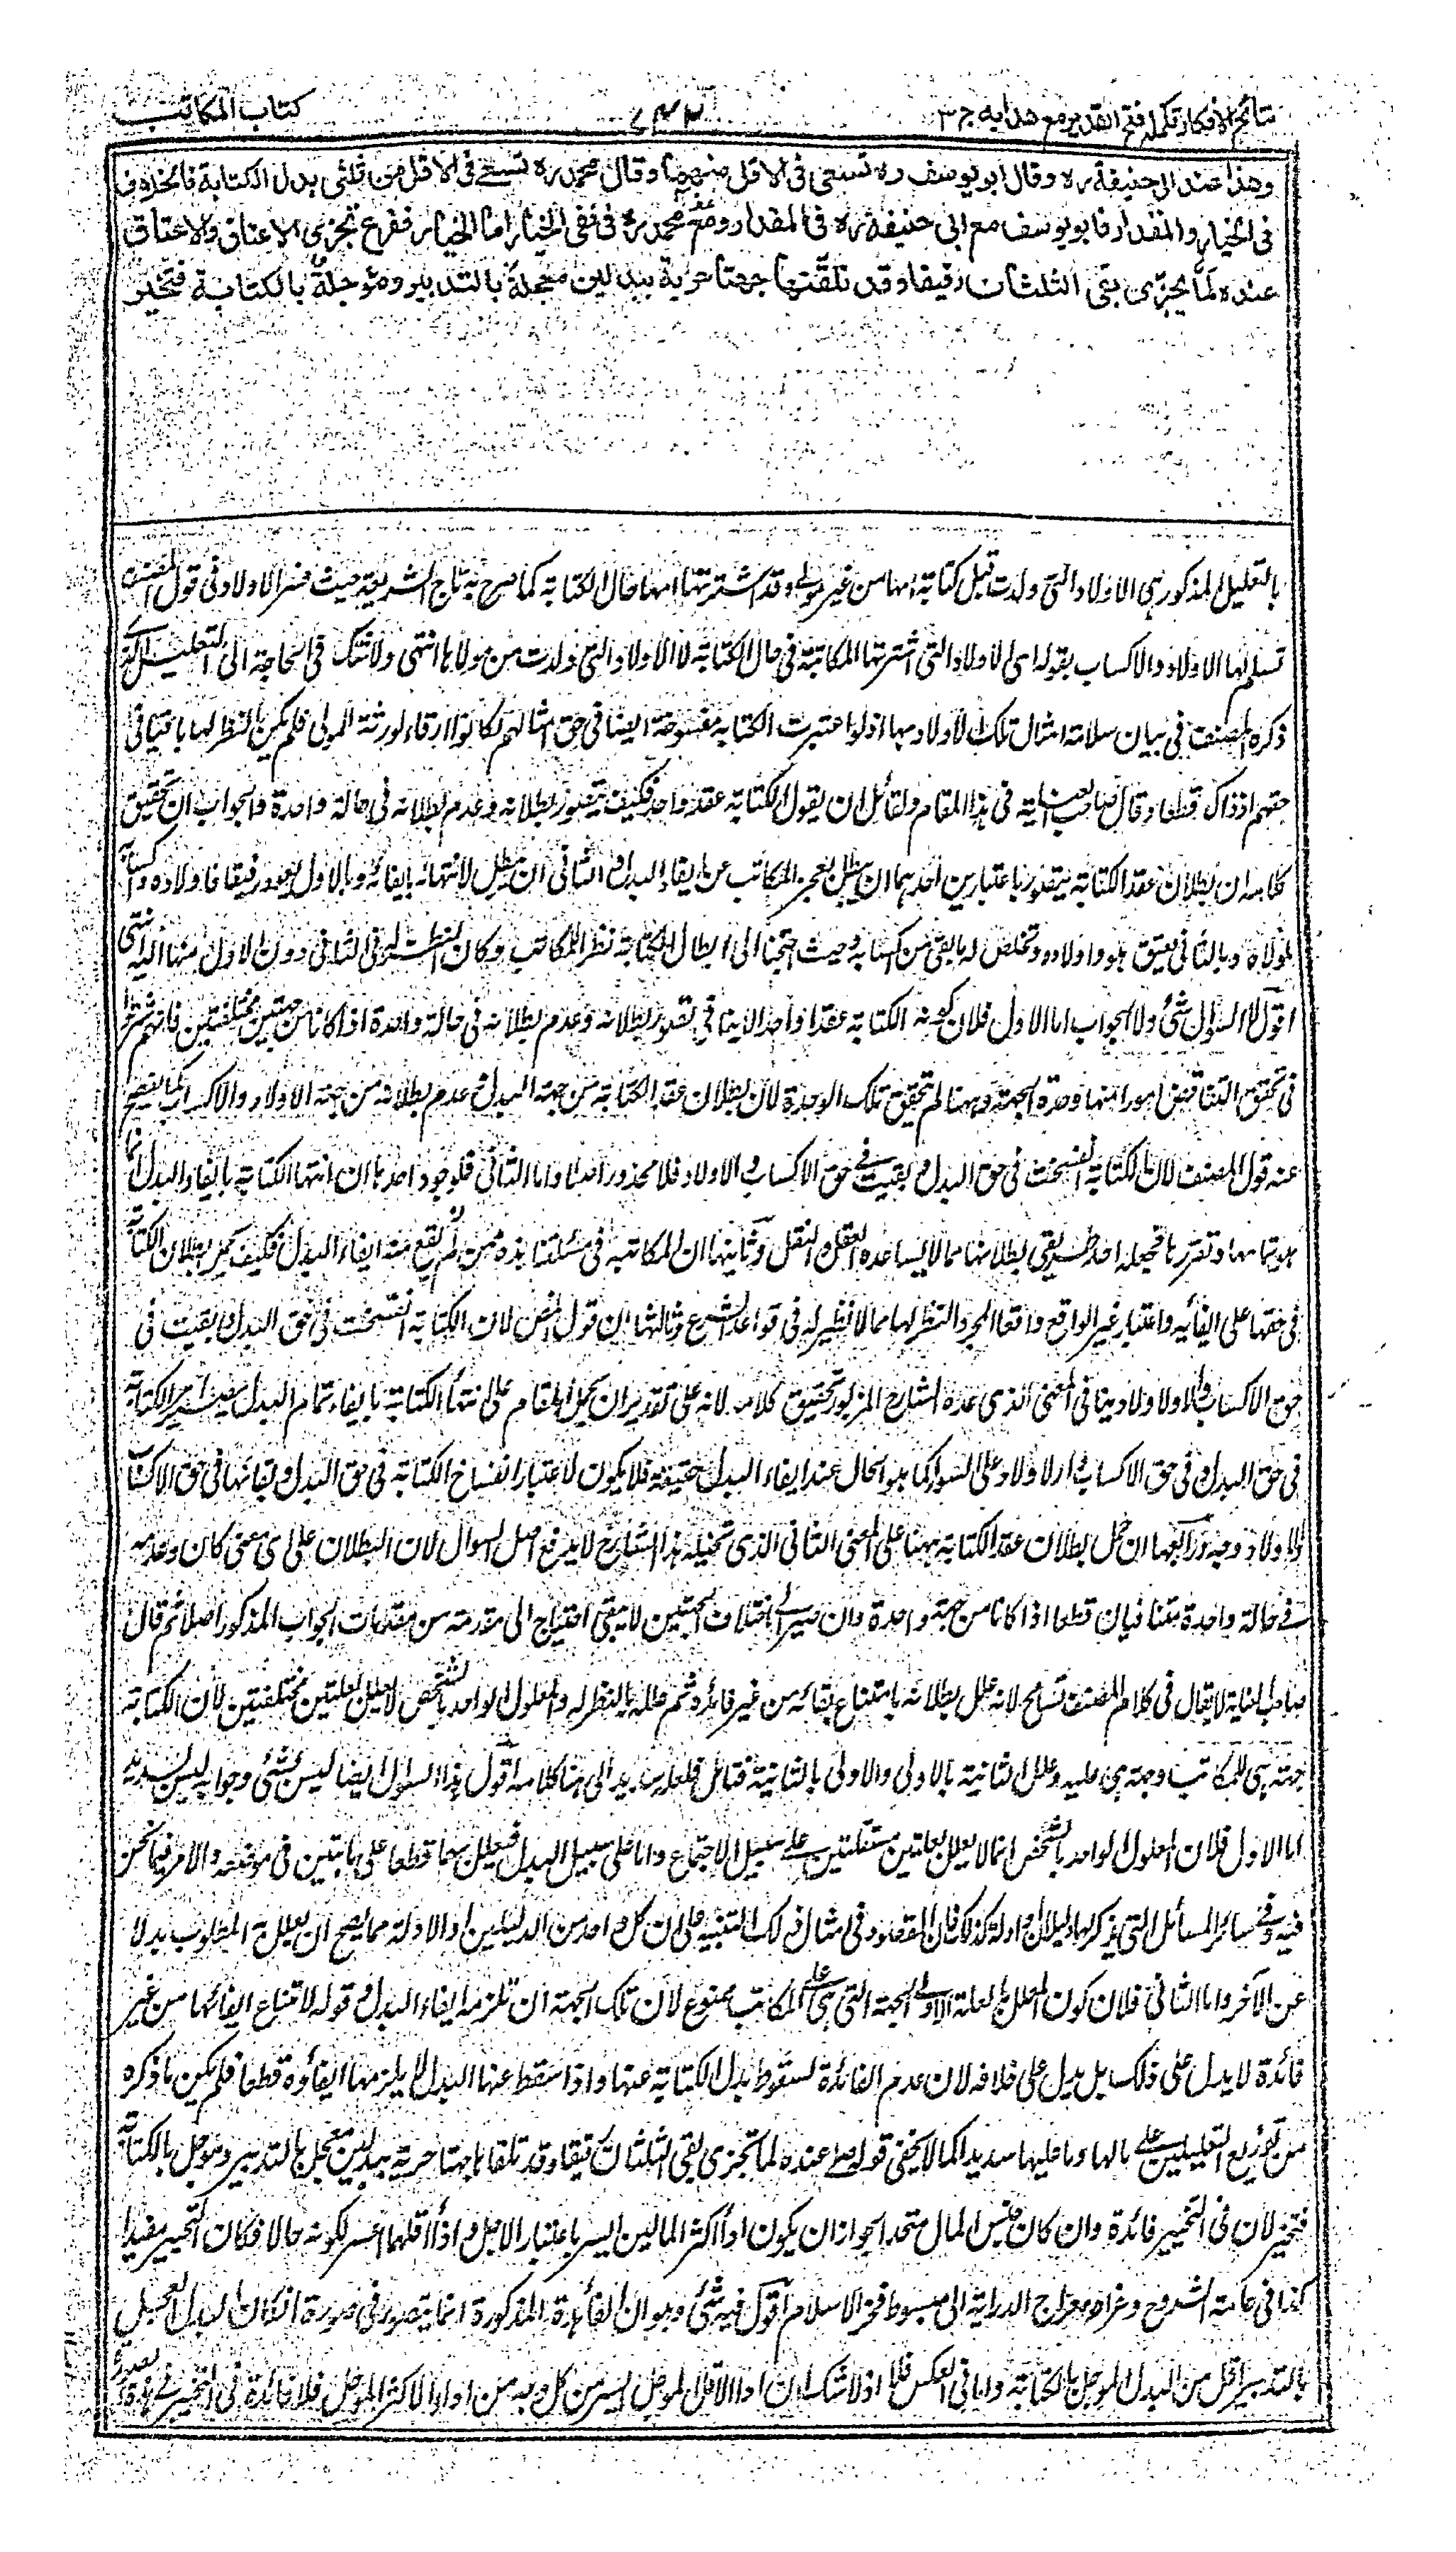 نتائج الافكار تكملة فتح القدير مع هدايه ج ٣
كتاب المكاتب
وهذا عند ابى حنيفة ره وقال ابو يوسف ره تسعى فى الاقل منهما وقال محمد ره تسعى فى الاقل من ثلثى بدل الكتابة فالخلاف
فى الخيار والمقدار فابو يوسف مع ابى حنيفة ره فى المقدار ومع محمد ره فى نفى الخيار اما الخيار ففرع تجزى الاعتاق والاعتاق
عنده لما تجزى بقى الثلثان رقيقا وقد تلقتها جهتا حرية ببدلين معجلة بالتدبير ومؤجلة بالكتابة فتخير
بالتعليل المذكور هى الاولاد التى ولدت قبل كتابة امها من غير مولى وقد اشترتها امها حال الكتابة كما صرح به تاج الشريعة حيث فسر الاولاد فى قول المصنف
تسلم لها الاولاد والاكساب بقوله اى الاولاد التى اشترتها المكاتبة فى حال الكتابة لا الاولاد التى ولدت من مولاها انتهى ولا شك فى الحاجة الى التعليل الذى
ذكره المصنف فى بيان سلامة امثال تلك الاولاد لها اذ لو اعتبرت الكتابة مفسوخة ايضا فى حق امثالهم لكانوا ارقاء لورثة المولى فلم يكن النظر لها باعتبار فى
حقهم اذ ذاك قطعا وقال صاحب العناية فى هذا المقام ولقائل ان يقول الكتابة عقد واحد فكيف يتصور بطلانه وعدم بطلانه فى حالة واحدة والجواب ان تحقيق
كلامه ان بطلان عقد الكتابة يتصور باعتبارين احدهما ان يبطل بعجز المكاتب عن ايفاء البدل والثانى ان يبطل لانتهائه بايفائه وبالاول يعود رقيقا فاولاده واكسابه
لمولاه وبالثانى يعتق هو واولاده وتخلص له ما بقى من اكسابه وحيث احتجنا الى ابطال الكتابة نظرا للمكاتب وكان النظر له فى الثانى دون الاول ملنا اليه انتهى
اقول لا السؤال شئ ولا الجواب اما الاول فلان كونه الكتابة عقدا واحدا لا ينافى تصور بطلانه وعدم بطلانه فى حالة واحدة اذا كانا من جهتين مختلفتين فانهم شرطوا
فى تحقق التناقض امورا منها وحدة الجهة وههنا لم تتحقق تلك الوحدة لان بطلان عقد الكتابة من جهة البدل وعدم بطلانه من جهة الاولاد والاكساب كما يفصح
عنه قول المصنف لان الكتابة انفسخت فى حق البدل وبقيت فى حق الاكساب والاولاد فلا محذور اصلا واما الثانى فلوجوه احدها ان انتهاء الكتابة بايفاء البدل انما
هو تمامها وتقررها فجعله احد طريقى بطلانها مما لا يساعده العقل والنقل وثانيها ان المكاتبة فى مسئلتنا هذه ممن لم يقع منه ايفاء البدل فكيف يحمل بطلان الكتابة
فى حقها على ايفائه واعتبار غير الواقع واقعا لمجرد النظر لها مما لا نظير له فى قواعد الشرع وثالثها ان قول المصنف لان الكتابة انفسخت فى حق البدل وبقيت فى
حق الاكساب والاولاد ينافى المعنى الذى عده الشارح المزبور تحقيق كلامه لانه على تقدير ان يحمل المقام على انتهاء الكتابة بايفاء تمام البدل يصير امر الكتابة
فى حق البدل وفى حق الاكساب والاولاد على السواء كما هو الحال عند ايفاء البدل حقيقة فلا يكون لاعتبار انفساخ الكتابة فى حق البدل وبقائها فى حق الاكساب
والاولاد وجه ورابعها ان حمل بطلان عقد الكتابة ههنا على المعنى الثانى الذى تخيله هذا الشارح لا يدفع اصل السوال لان البطلان على اى معنى كان وعدمه
فى حالة واحدة متنافيان قطعا اذا كانا من جهة واحدة وان صير الى اختلاف الجهتين لا يبقى احتياج الى مقدمة من مقدمات الجواب المذكور اصلا ثم قال
صاحب العناية لا يقال فى كلام المصنف تسامح لانه علل بطلانه بامتناع بقائه من غير فائدة ثم علله بالنظر له والمعلول الواحد بالشخص لا يعلل بعلتين مختلفتين لان الكتابة
جهة هى للمكاتب وجهة هى عليه وعلل الثانية بالاولى والاولى بالثانية فتامل فلعله سديد الى هنا كلامه اقول هذا السؤال ايضا ليس بشئ وجوابه ليس بسديد
اما الاول فلان المعلول الواحد بالشخص انما لا يعلل بعلتين مستقلتين على سبيل الاجتماع واما على سبيل البدل فيعلل بهما قطعا على ما تبين فى موضعه والامر فيما نحن
فيه وفى سائر المسائل التى يذكر لها دليلان او ادلة كذلك فان المقصود فى امثال ذلك التنبيه على ان كل واحد من الدليلين او الادلة مما يصح ان يعلل به المطلوب بدلا
عن الآخر واما الثانى فلان كون المعلل بالعلة الاولى الجهة التى هى على المكاتب ممنوع لان تلك الجهة ان تلزمه ايفاء البدل وقوله لامتناع ايفائها من غير
فائدة لا يدل على ذلك بل يدل على خلافه لان عدم الفائدة لسقوط بدل الكتابة عنها واذا سقط عنها البدل لا يلزمها ايفاؤه قطعا فلم يكن ما ذكره
من توزيع التعليلين على مالها وما عليها سديدا كما لا يخفى قوله عنده لما تجزى بقى الثلثان رقيقا وقد تلقاها جهتا حرية ببدلين معجل بالتدبير ومؤجل بالكتابة
فتخير لان فى التخيير فائدة وان كان جنس المال متحدا لجواز ان يكون اداء اكثر المالين ايسر باعتبار الاجل واداء اقلهما اعسر لكونه حالا فكان التخيير مفيدا
كذا فى عامة الشروح وعزاه معراج الدراية الى مبسوط فخر الاسلام اقول فيه شئ وهو ان الفائدة المذكورة انما يتصور فى صورة ان كان البدل المعجل
بالتدبير اقل من البدل المؤجل بالكتابة واما فى العكس فلا اذ لا شك ان اداء الاقل المؤجل ايسر من كل وجه من اداء الاكثر المؤجل فلا فائدة فى التخيير فى هذه الصورة